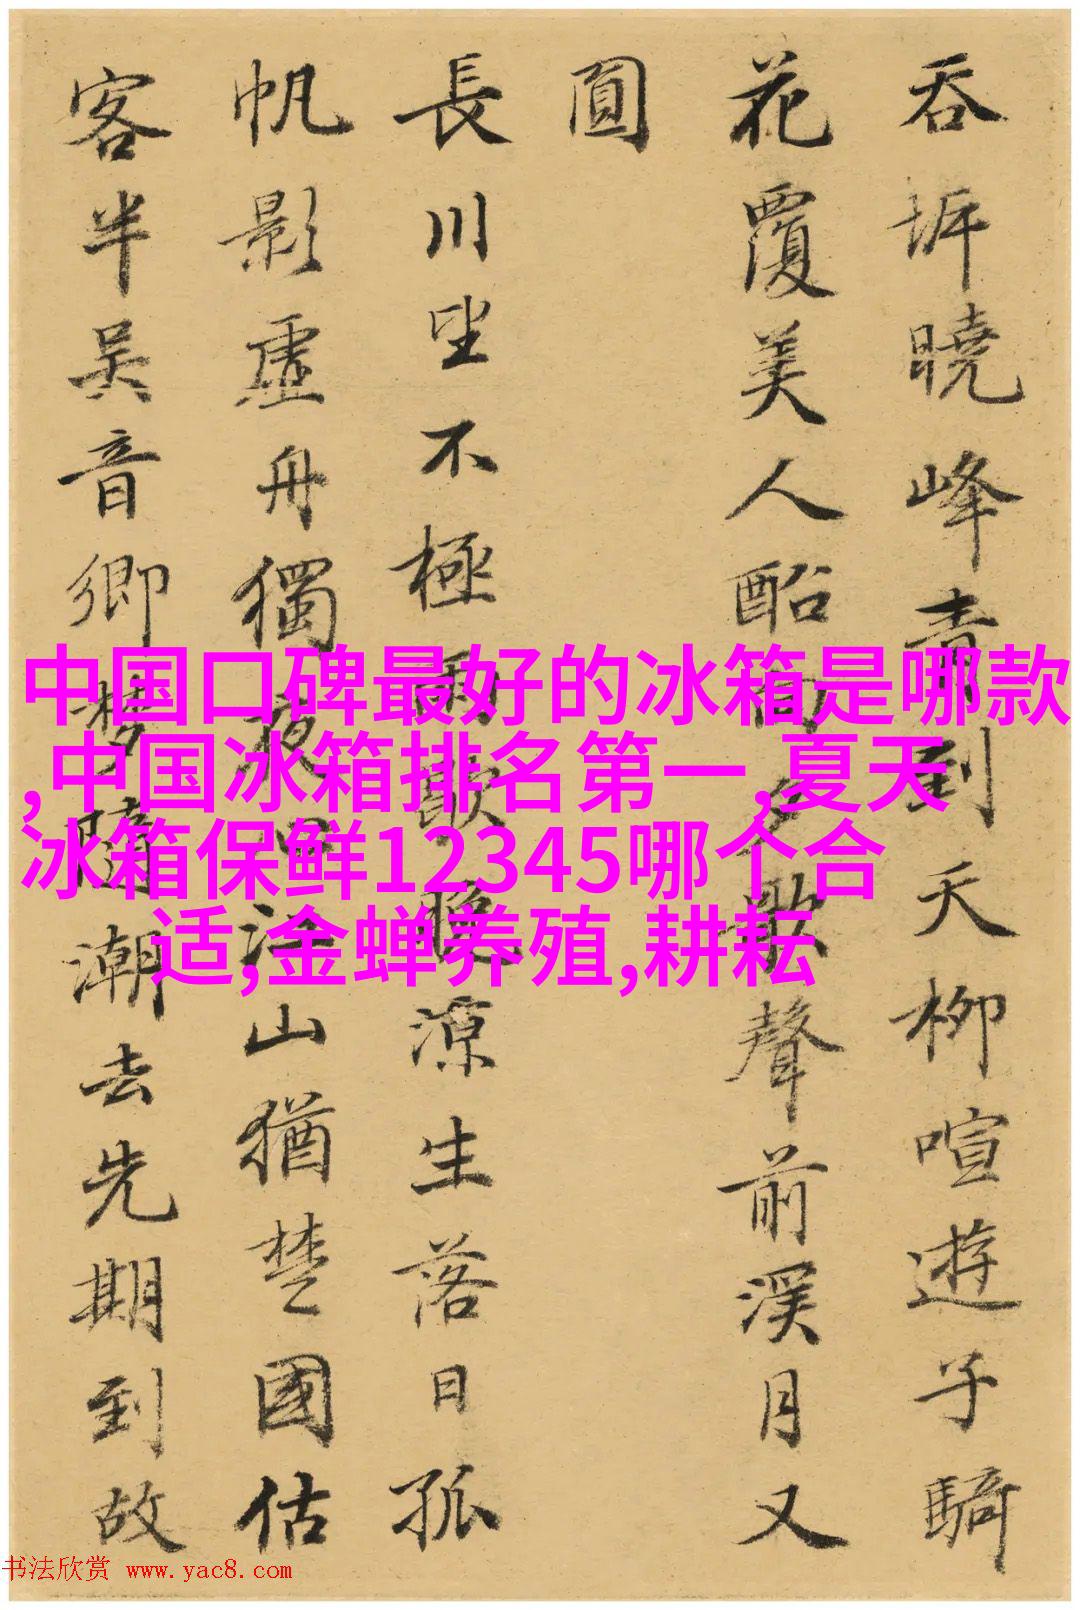 吞坼曉峰青到天柳喧遊子騎
花覆美人酩歌聲前溪月又
圓
長川坐不極雨歇晚涼生落日孤
帆影虛舟獨夜心江山猶楚國估
客半吴音鄉夢隨潮去先期到故
中国口碑最好的冰箱是哪款
,中国冰箱排名第一,夏天
冰箱保鲜12345哪个合
适,金蝉养殖,耕耘
书法欣赏 www.yac8.com